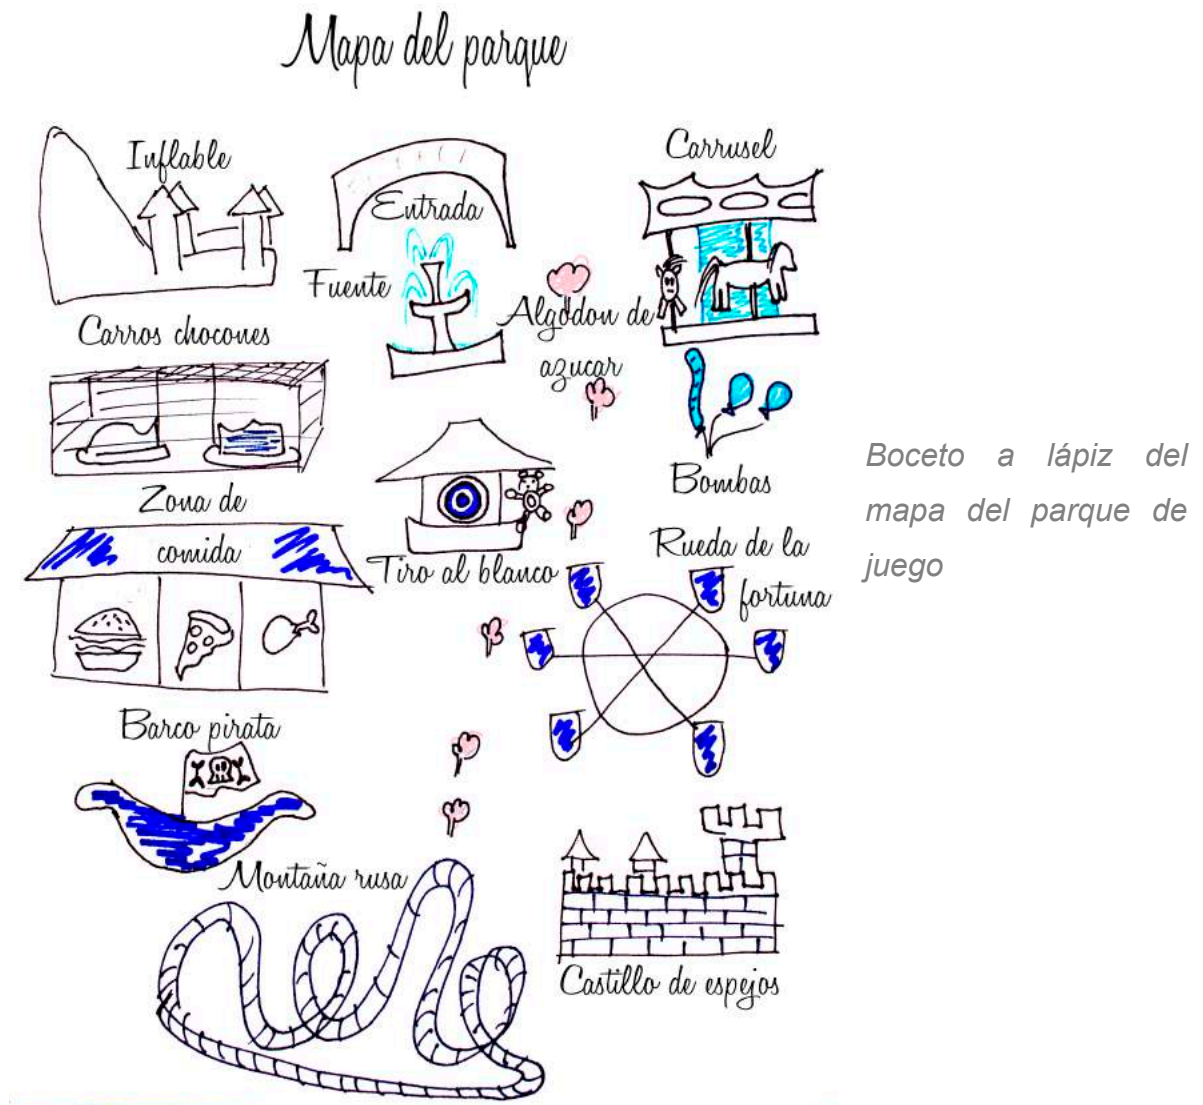 Mapa del parque
Inflable
Entrada
Carrusel
Fuente
Algodon de
azucar
Carros chocones
Bombas
Zona de
comida
Tiro al blanco
Rueda de la
fortuna
Barco pirata
Montaña rusa
Castillo de espejos
Boceto a lápiz del
mapa del parque de
juego